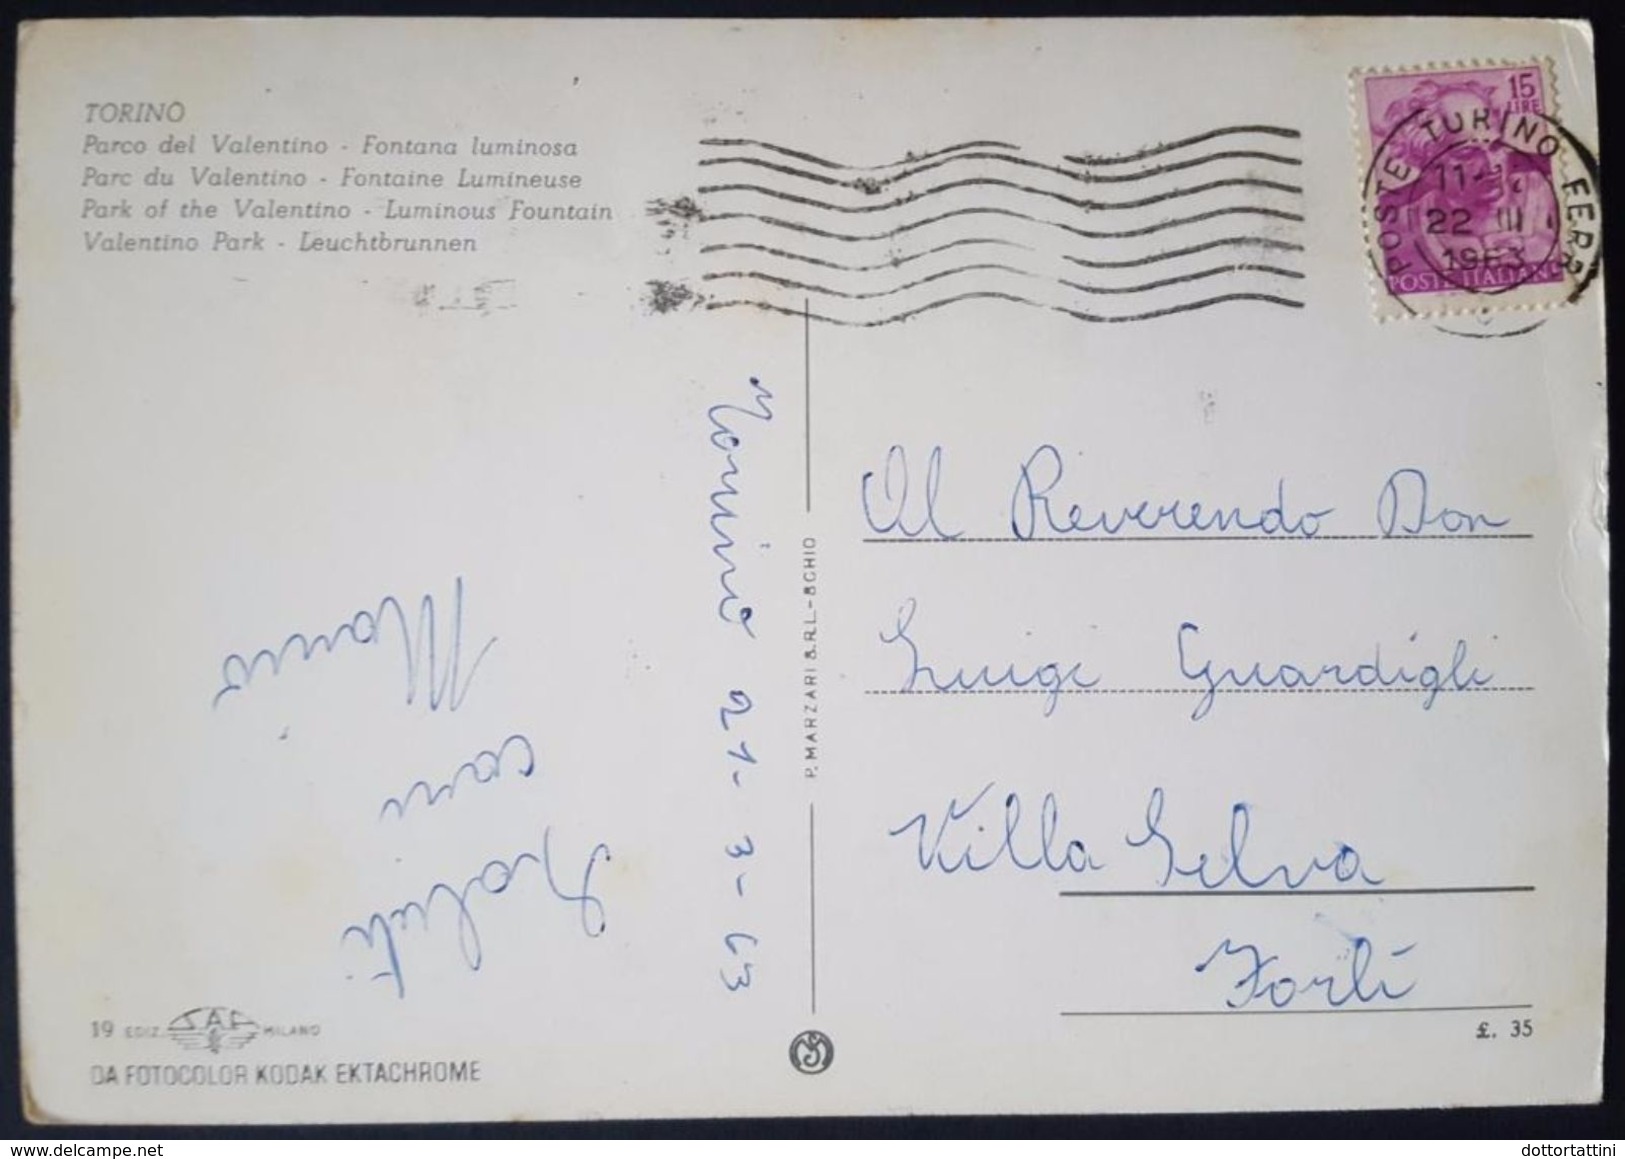 TORINO
Parco del Valentino - Fontana luminosa
Parc du Valentino - Fontaine Lumineuse
Park of the Valentino - Luminous Fountain
Valentino Park - Leuchtbrunnen
15
LIRE
POSTE ITALIANE
POSTE TORINO FERR
22 III
1963
Torino 21-3-63
Saluti
cari
Mario
P. MARZARI S.R.L.-SCHIO
Al Reverendo Don
Luigi Guardigli
Villa Selva
Forlì
£. 35
19 EDIZ. SAF MILANO
DA FOTOCOLOR KODAK EKTACHROME
dottortattini